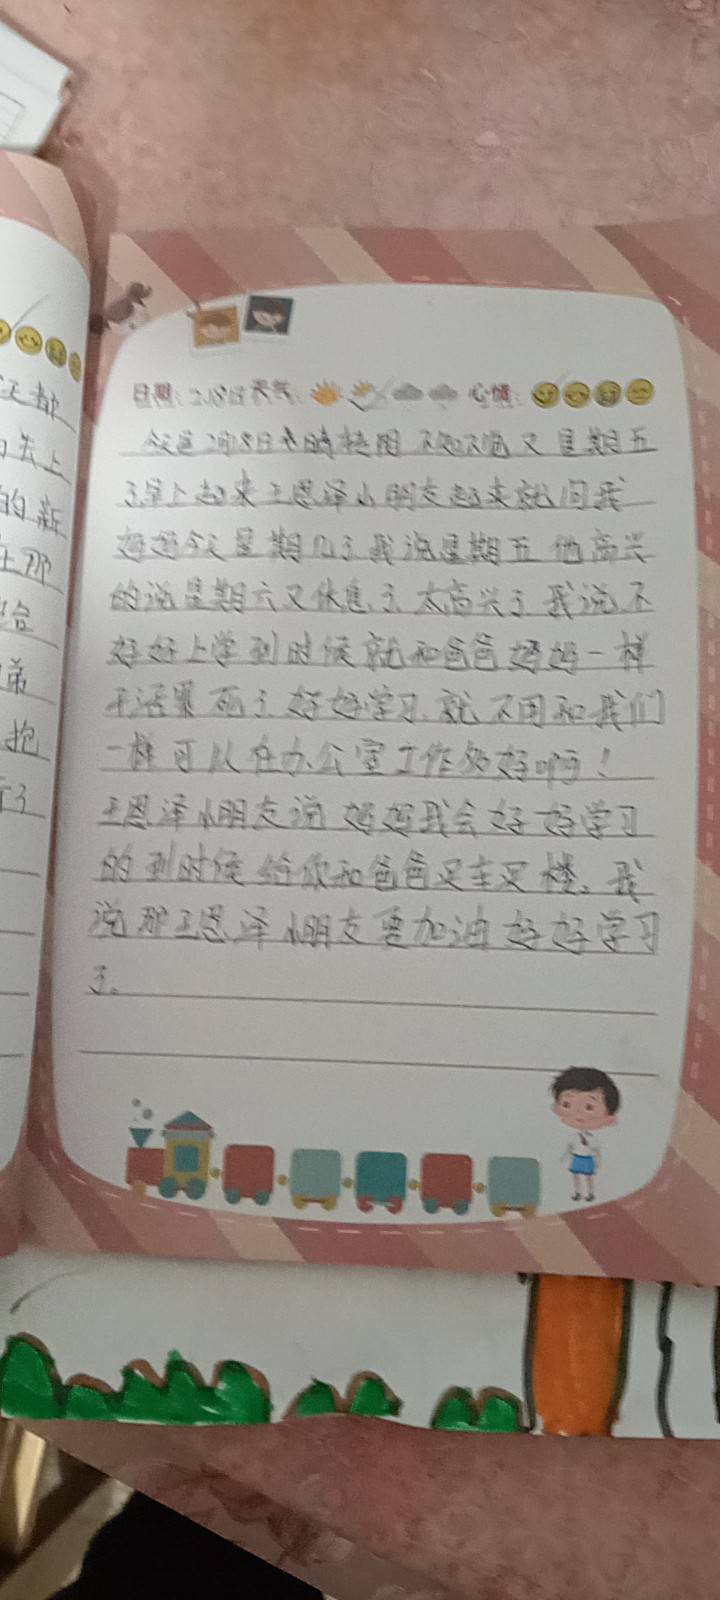 天都
去上
的新
在那
给
弟
抱
了
日期: 2.18日 天气: 心情:
今天是2月18日天晴转阴 不知不觉 又星期五
了早上起来王恩泽小朋友起来就问我
妈妈今天星期几了我说星期五 他高兴
的说星期六又休息了 太高兴了 我说不
好好上学到时候就和爸爸妈妈一样
干活累死了 好好学习就不用和我们
一样可以在办公室工作多好啊!
王恩泽小朋友说妈妈我会好好学习
的到时候给你和爸爸买车买楼。我
说那王恩泽小朋友要加油好好学习
了。